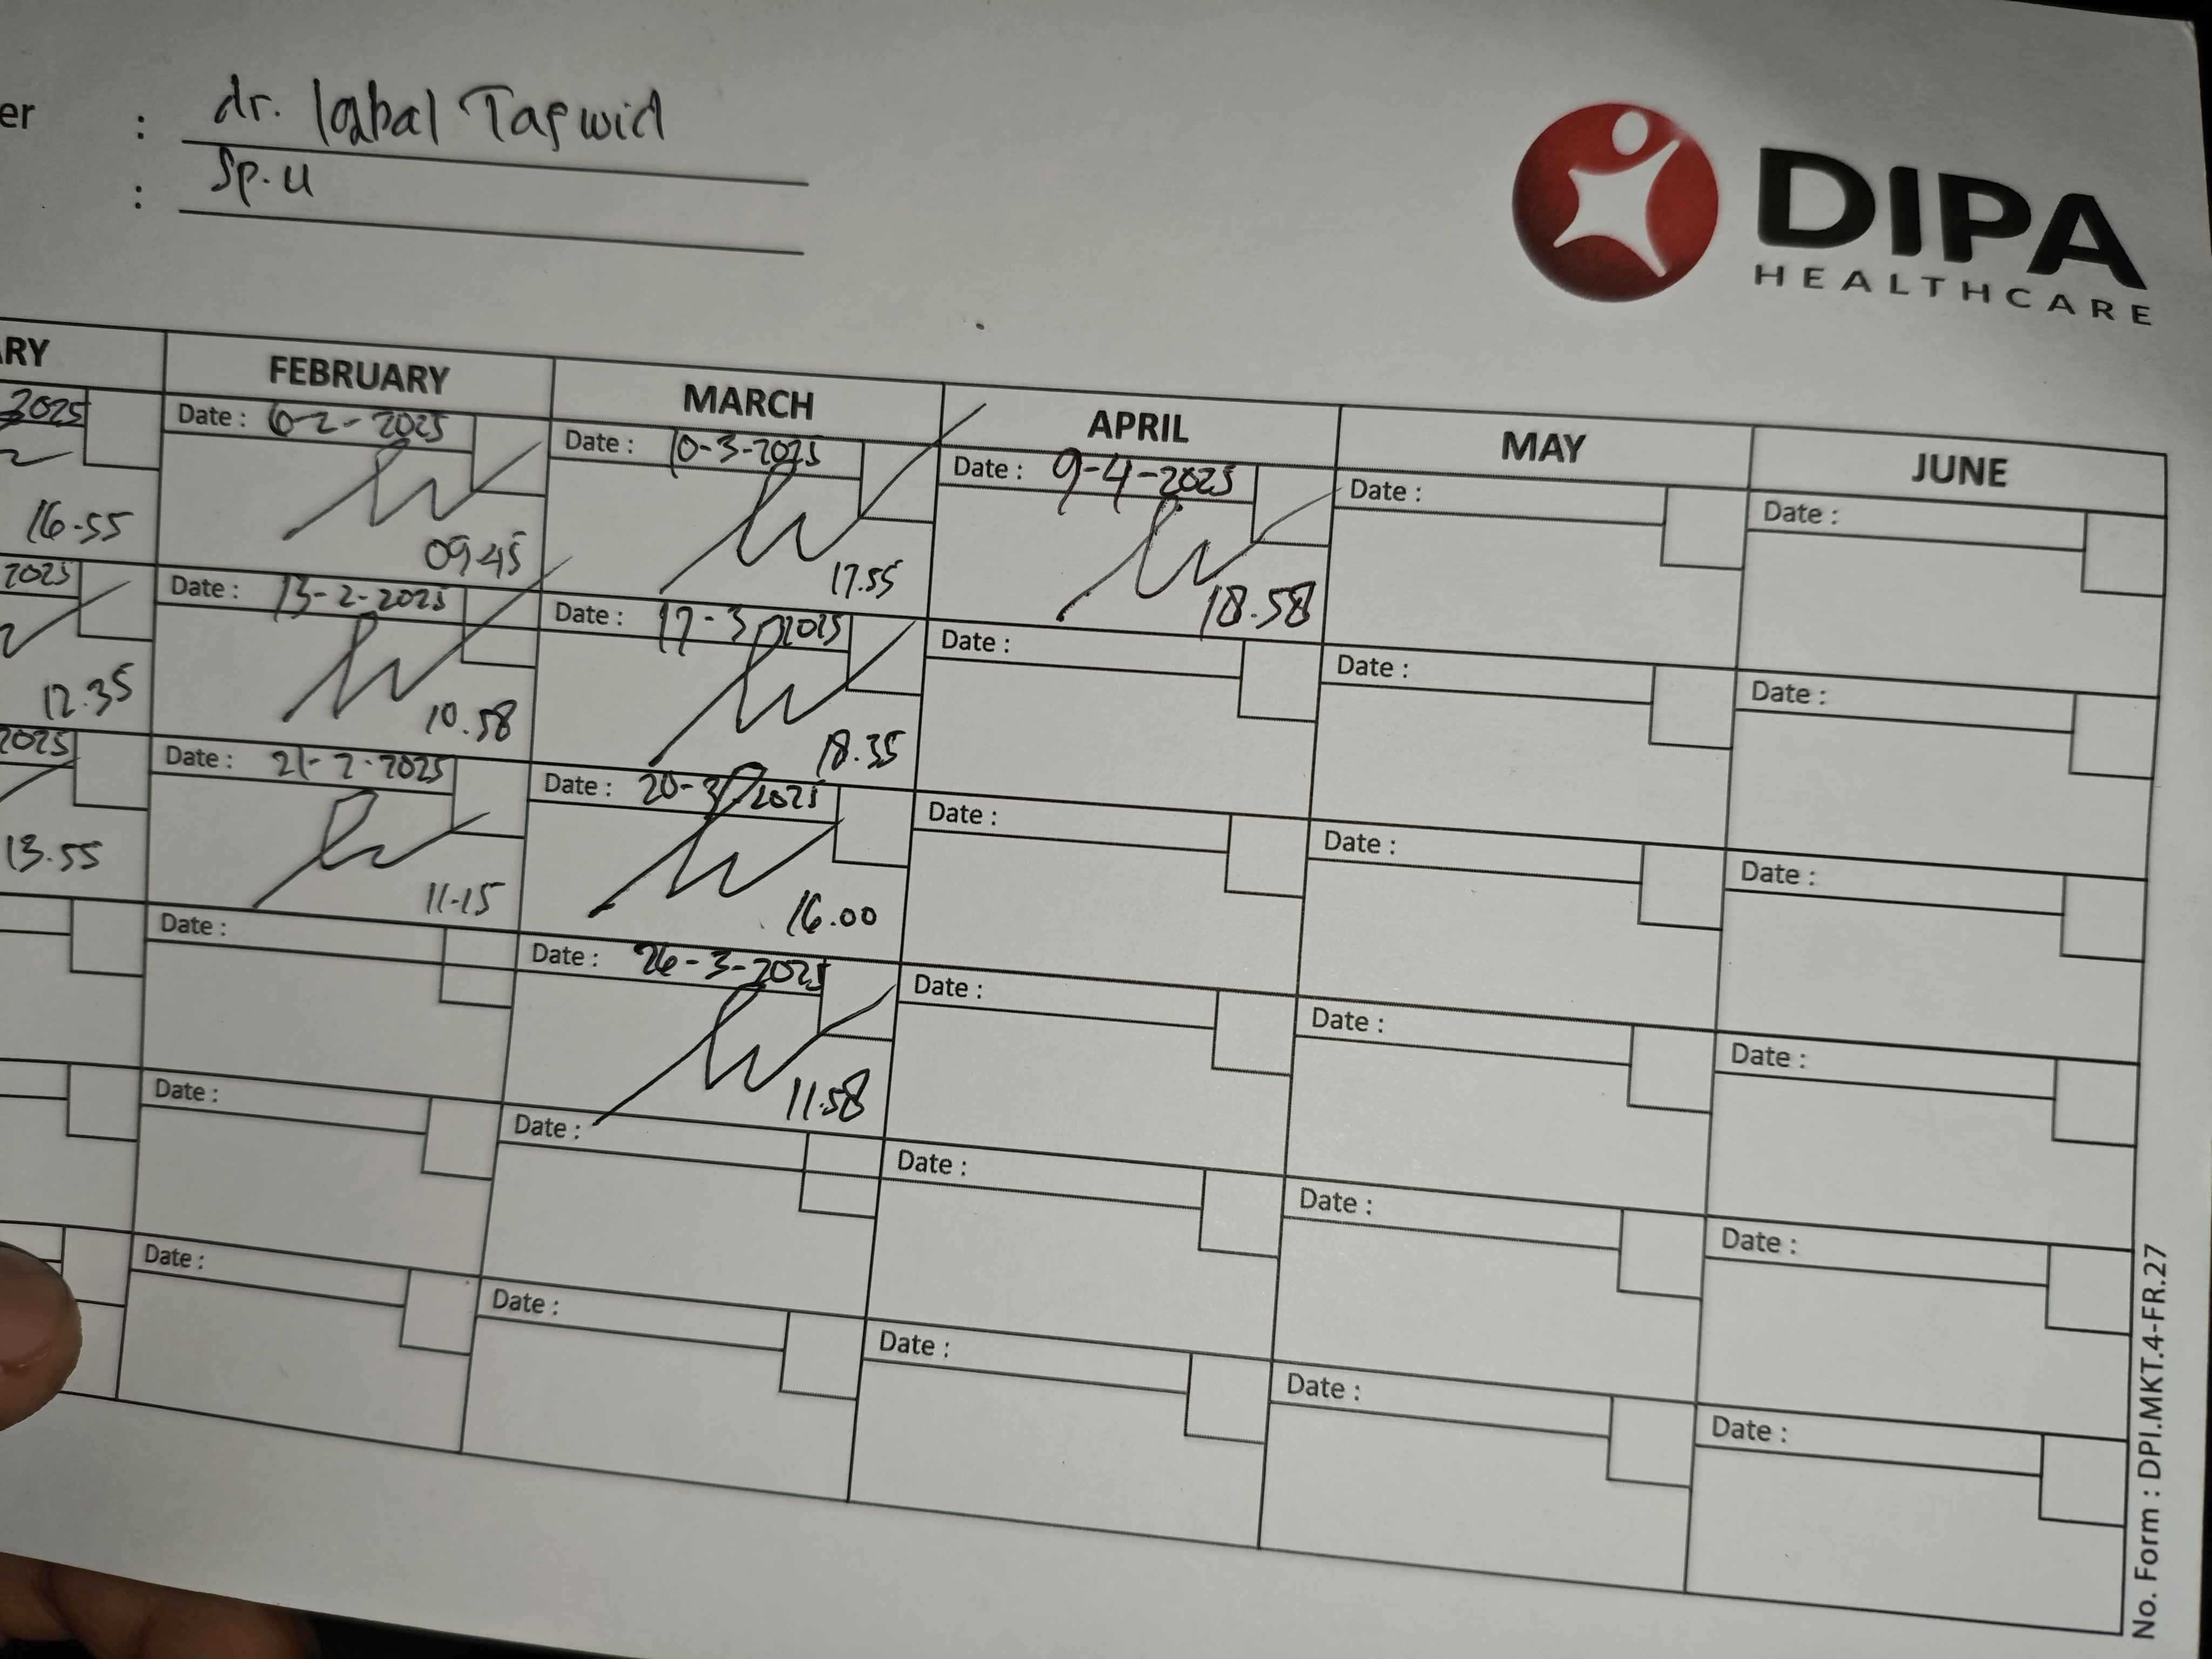 er : dr. Iqbal Taqwid
: Sp.U
DIPA
HEALTHCARE
RY FEBRUARY MARCH APRIL MAY JUNE
2025 Date : 6-2-2025 Date : 10-3-2025 Date : 9-4-2025 Date : Date :
16.55 09.45 17.55 18.58
2025 Date : 13-2-2025 Date : 17-3-2025 Date : Date : Date :
12.35 10.58 18.35
2025 Date : 21-2-2025 Date : 20-3-2025 Date : Date : Date :
13.55 11.15 16.00
Date : Date : 26-3-2025 Date : Date : Date :
11.58
Date : Date : Date : Date : Date :
Date : Date : Date : Date : Date :
No. Form : DPI.MKT.4-FR.27